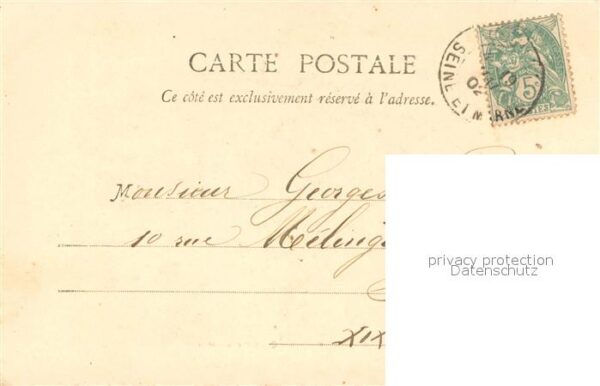 CARTE POSTALE
Ce côté est exclusivement réservé à l'adresse.
SEINE ET MARNE
19
02
5
Monsieur Georges
10 rue Méling
XIX
privacy protection
Datenschutz